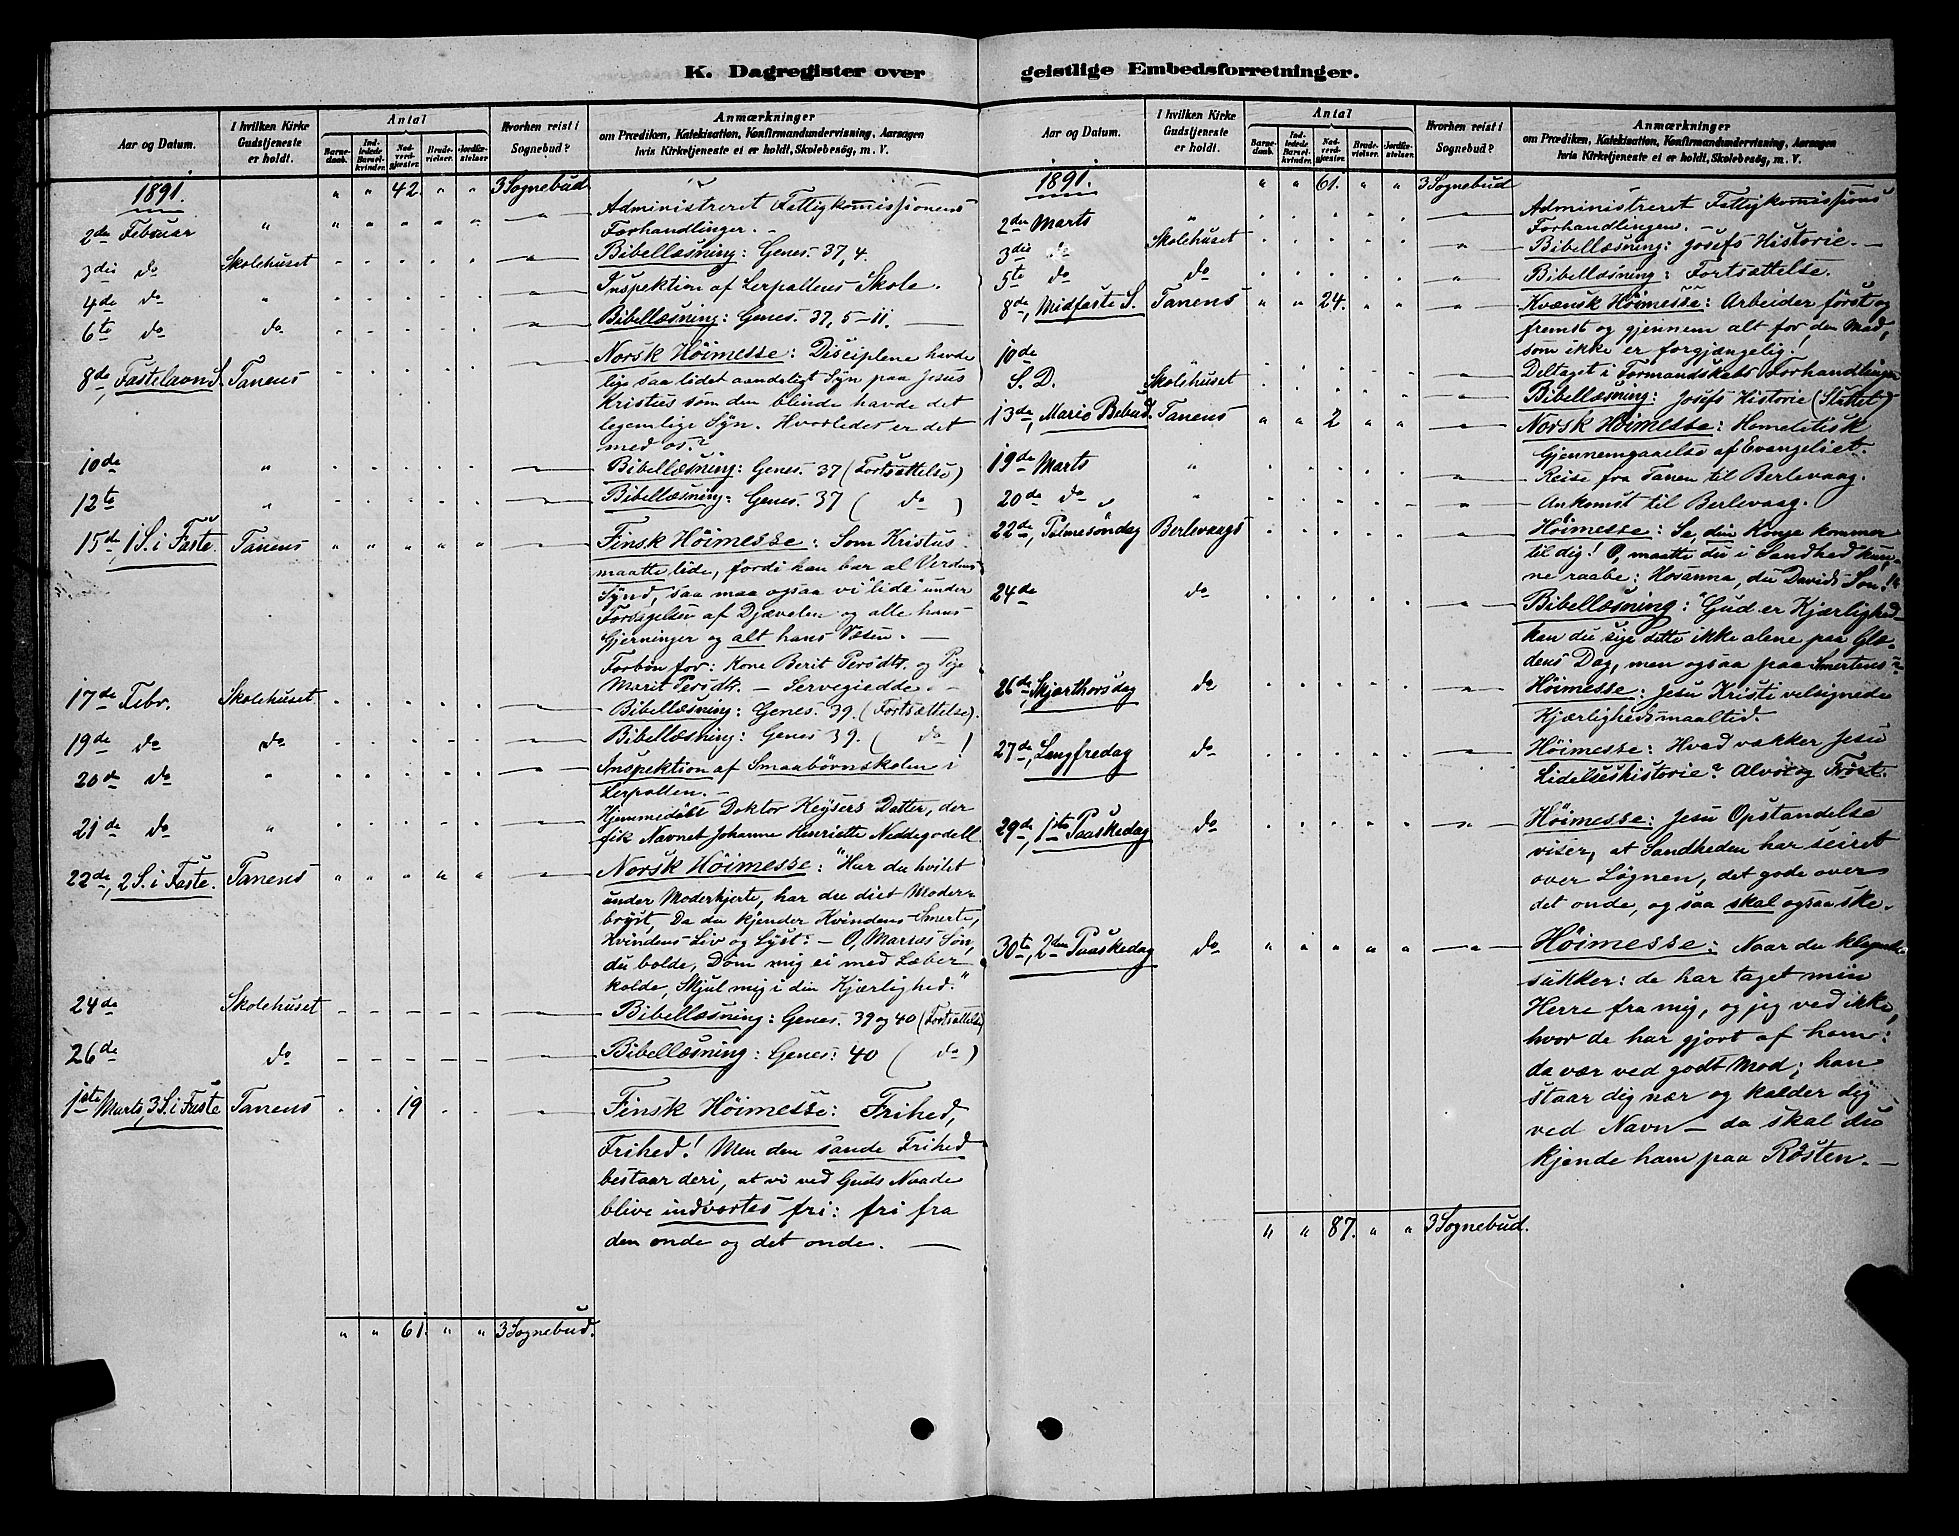 K. Dagregister over
Aar og Datum.
I hvilken Kirke Gudstjeneste er holdt.
Antal
Barnedaab.
Indledede Barselkvinder.
Nadverdgjester.
Brudevielser.
Jordfæstelser.
Hvorhen reist i Sognebud?
Anmærkninger
om Prædiken, Katekisation, Konfirmandundervisning, Aarsagen
hvis Kirketjeneste ei er holdt, Skolebesög, m. V.
1891. " " 42. " " 3 Sognebud
2den Februar " Administreret Fattigkommissionens
Forhandlinger. –
3die do Skolehuset Bibellæsning: Genes. 37, 4.
4de do " Inspektion af Lerpollens Skole.
6te do do Bibellæsning: Genes. 37, 5-11.
8de, Fastelavn S. Tanens Norsk Höimesse: Disciplene havde
lige saa lidet aandeligt Syn paa Jesus
Kristus som den blinde havde det
legemlige Syn. Hvorledes er det
med os?
10de " Bibellæsning: Genes. 37 (Fortsættelse)
12te " Bibellæsning: Genes. 37 ( do )
15de, 1 S. i Faste. Tanens " " " " " Finsk Höimesse: Som Kristus
maatte lide, fordi han bar al Verdens
Synd, saa maa ogsaa vi "lide" under
Forsagelse af Djævelen og alle hans
Gjerninger og alt hans Væsen. –
Forbøn for: Kone Berit Persdtr. og Pige
Marit Persdtr. – Servegiedde. –
17de Febr. Skolehuset Bibellæsning: Genes. 39. (Fortsættelse).
19de do do Bibellæsning: Genes 39. ( do )
20de do " Inspektion af Smaabørnskolen i
Lerpollen. –
21de do " Hjemmedöbt Doktor Keysers Datter, der
fik Navnet Johanne Henriette Neddegodell
22de, 2 S. i Faste. Tanens " " " " " Norsk Höimesse: "Har du hvilet
under Moderhjerte, har du diet Moder-
bryst, Da du kjender Kvindens Smerte,
Kvindens Liv og Lyst: – O, Marias Søn,
du bolde, Dom mig ei med Læber
kolde, Skjul mig i din Kjærlighed."
24de Skolehuset Bibellæsning: Genes. 39 og 40 (Fortsættelse)
26de do Bibellæsning: Genes: 40 ( do )
1ste Marts, 3 S. i Faste Tanens 19 Finsk Höimesse: Frihed,
Frihed! Men den sande Frihed
bestaar deri, at vi ved Guds Naade
blive indvortes fri: fri fra
den onde og det onde.
" " 61. " " 3 Sognebud.
geistlige Embedsforretninger.
Aar og Datum.
I hvilken Kirke Gudstjeneste er holdt.
Antal
Barnedaab.
Indledede Barselkvinder.
Nadverdgjester.
Brudevielser.
Jordfæstelser.
Hvorhen reist i Sognebud?
Anmærkninger
om Prædiken, Katekisation, Konfirmandundervisning, Aarsagen
hvis Kirketjeneste ei er holdt, Skolebesög, m. V.
1891. " " 61. " " 3 Sognebud
2den Marts " Administreret Fattigkommissions
Forhandlingen. –
3die do Skolehuset Bibellæsning: Josefs Historie. –
5te do do Bibellæsning: Fortsættelse.
8de, Midfaste S. Tanens " " 24. Kvænsk Höimesse: Arbeider först og
fremst og gjennem alt for den Mad,
som ikke er forgjængelig!
10de " Deltaget i Formandskabs Forhandlinger
S. D. Skolehuset Bibellæsning: Josefs Historie (Sluttet)
13de, Mariæ Bebud. Tanens " " 2 " " Norsk Höimesse: Homelitisk
Gjennemgaaelse af Evangeliet.
19de Marts " Reise fra Tanen til Berlevaag.
20de do " Ankomst til Berlevaag.
22de, Palmesøndag Berlevaags Höimesse: Se, din Konge kommer
til dig! O, maatte du i Sandhed kun-
ne raabe: Hosanna, du Davids Søn!
24de do Bibellæsning: "Gud er Kjærlighed
kan du sige dette ikke alene paa Glæ-
dens Dag, men ogsaa paa Smertens?
26de, Skjærthorsdag do Höimesse: Jesu Kristi velsignede
Kjærlighedsmaaltid.
27de, Langfredag do Höimesse: Hvad vækker Jesu
Lidelseshistorie? Alvor og Trøst.
29de, 1ste Paaskedag do Höimesse: Jesu Opstandelse
viser, at Sandheden har seiret
over Løgnen, det gode over
det onde, og saa skal ogsaa ske.
30te, 2den Paaskedag do " " " " " Höimesse: Naar du klagende
sukker: de har taget min
Herre fra mig, og jeg ved ikke,
hvor de har gjort af ham:
da vær ved godt Mod; han
staar dig nær og kalder dig
ved Navn – da skal du
kjende ham paa Rösten. –
" " 87. " " 3 Sognebud.